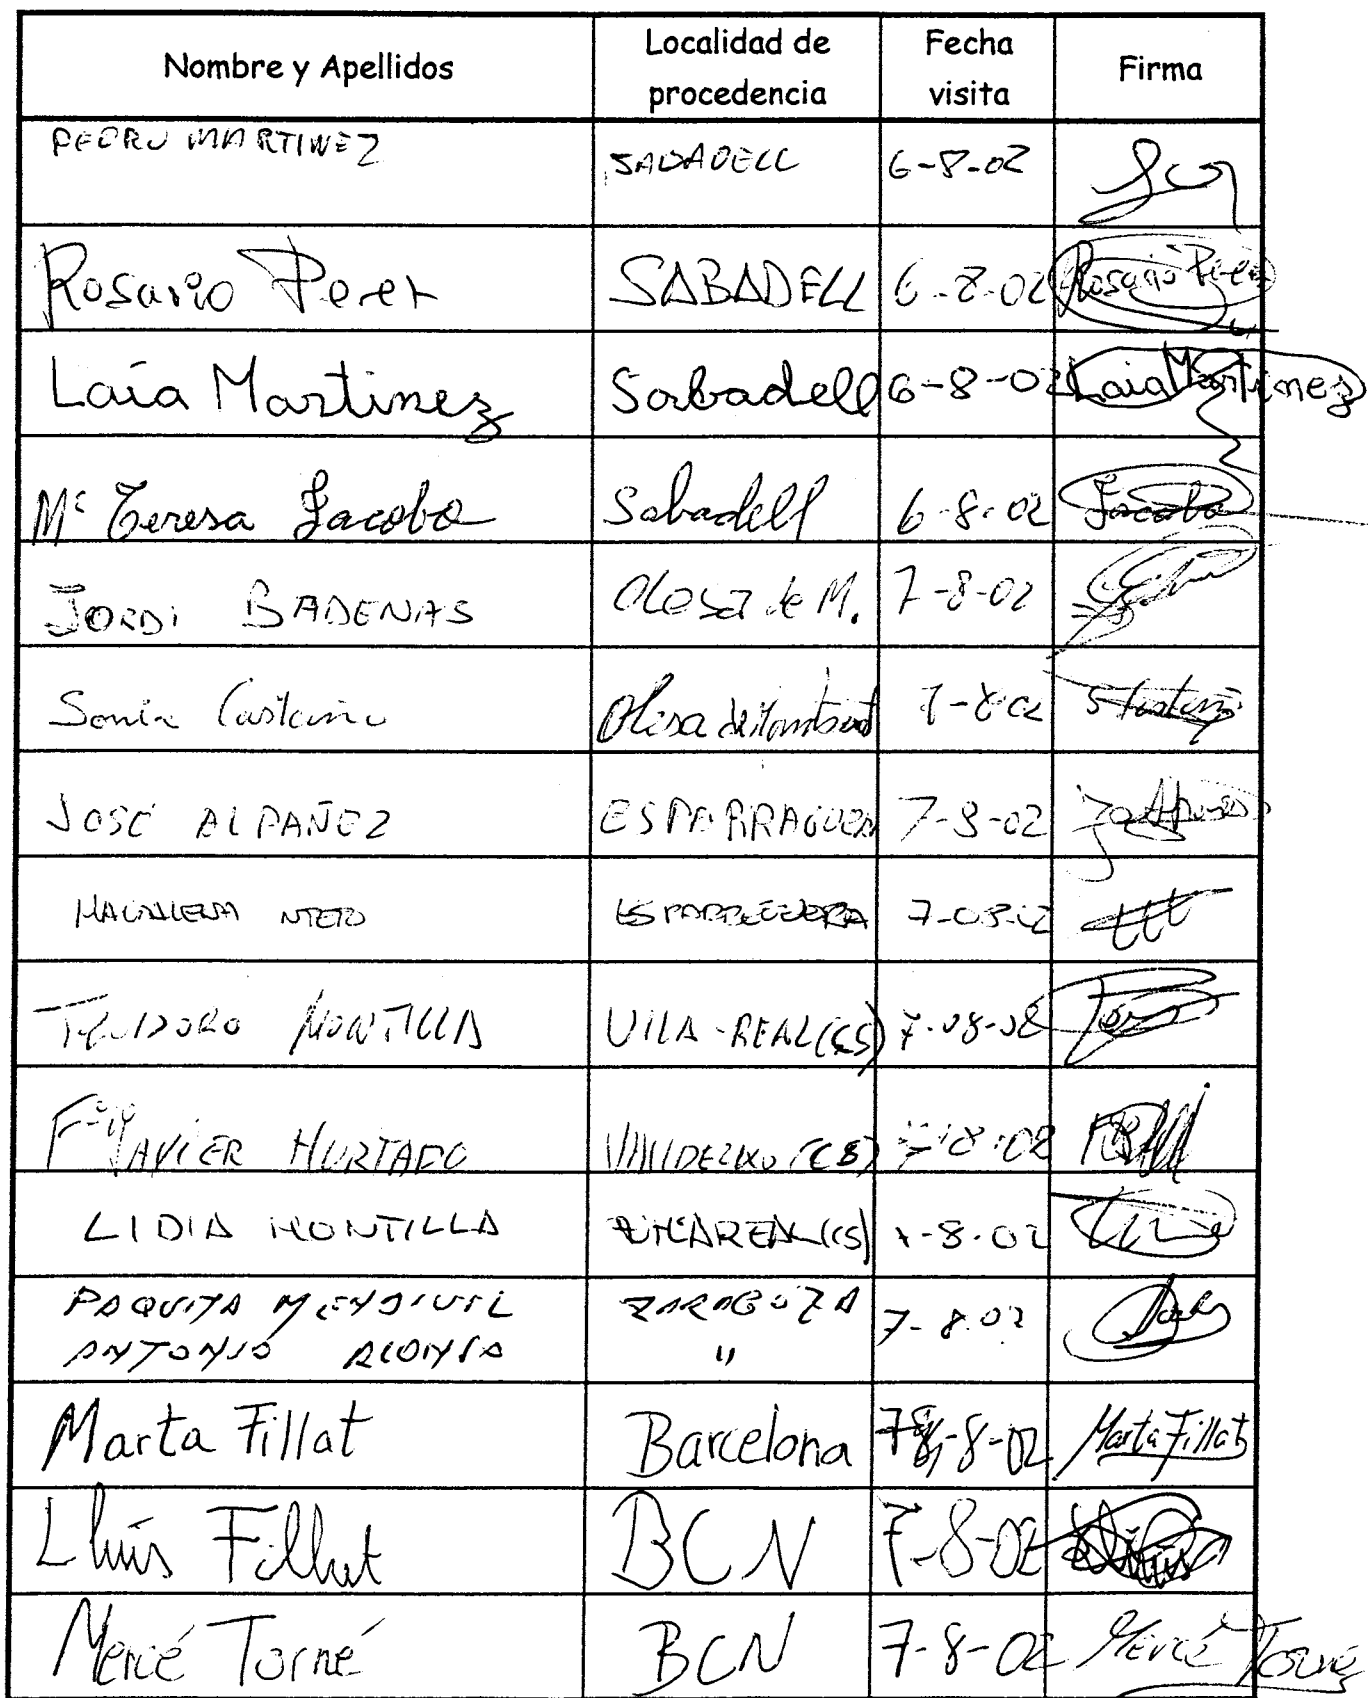 Nombre y Apellidos Localidad de procedencia Fecha visita Firma
PEDRO MARTINEZ SABADELL 6-8-02
Rosario Perez SABADELL 6-8-02 Rosario Perez
Laia Martinez Sabadell 6-8-02 Laia Martinez
Mª Teresa Jacobo Sabadell 6-8-02 Jacobo
JORDI BADENAS Olesa de M. 7-8-02
Sonia Castaño Olesa de Montserrat 7-8-02
JOSÉ ALPAÑEZ ESPARRAGUERA 7-8-02
MAGDALENA NIETO ESPARREGUERA 7-08-02
TEODORO MONTILLA VILA-REAL (CS) 7-08-02
Fco JAVIER HURTADO (CS) 7-8-02
LIDIA MONTILLA VILAREAL (CS) 7-8-02
PAQUITA MENDIVIL ZARAGOZA 7-8-02
ANTONIO ALONSO "
Marta Fillat Barcelona 7-8-02 Marta Fillat
Lluís Fillat BCN 7-8-02
Mercé Torné BCN 7-8-02 Mercé Torné